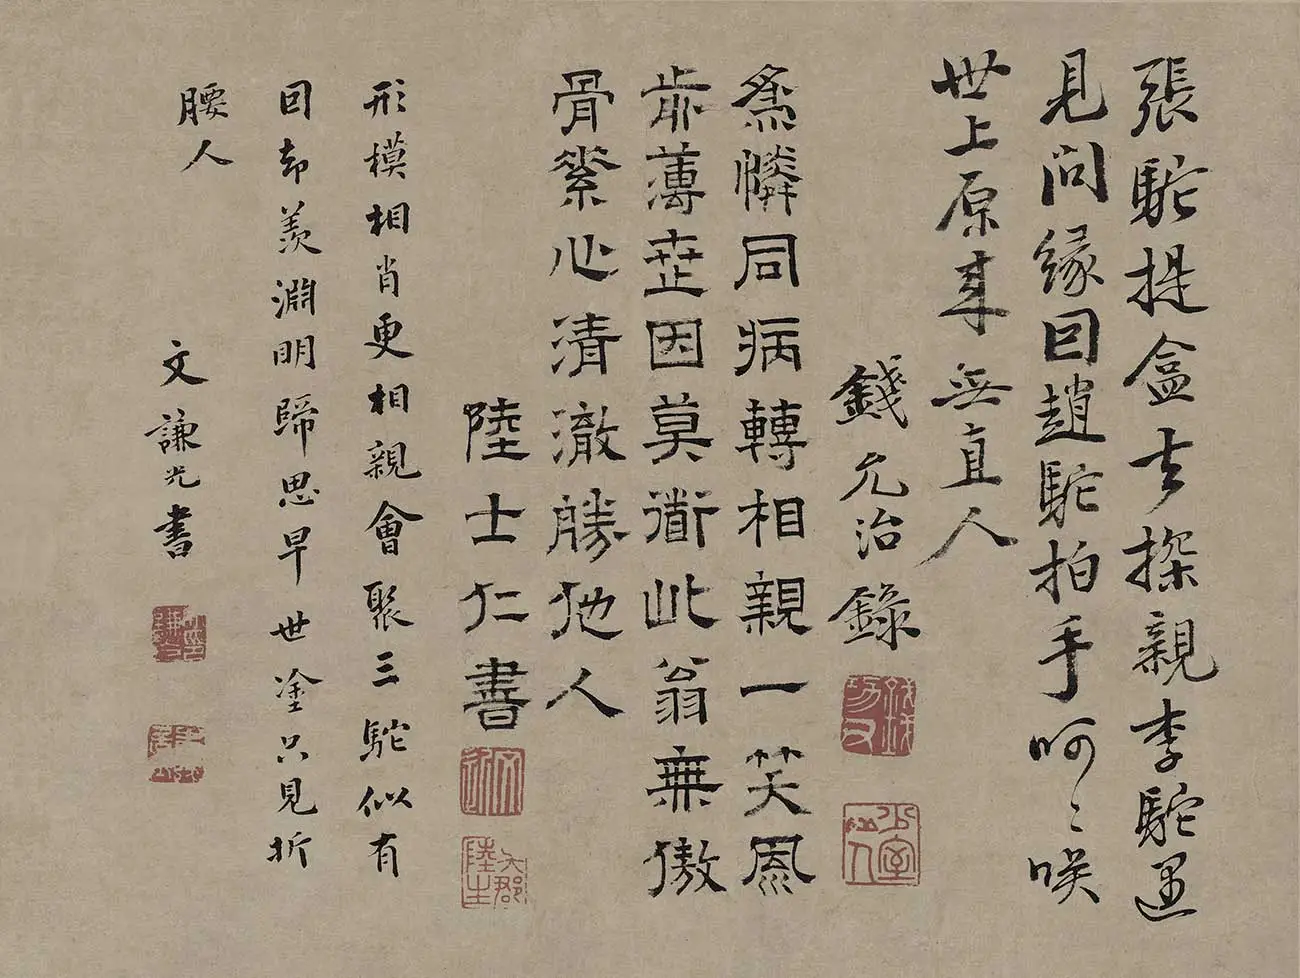 張駝提盒去探親李駝遇
見問緣囙趙駝拍手呵〻咲
世上原來無直人
錢允治錄
少室山人
爲憐同病轉相親一笑風
歬薄世因莫衜此翁無傲
骨素心清澈勝他人
陸士仁書
吳郡陸生
形模相肖更相親會聚三駝似有
囙却羨淵明歸思早世塗只見折
腰人
文謙光書